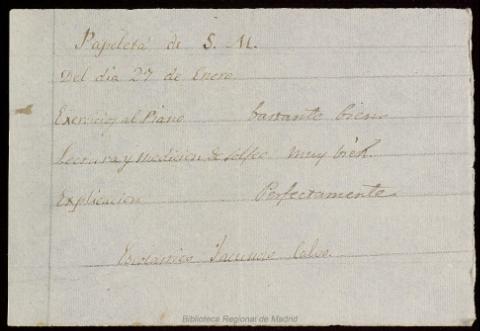 Papeleta de S. M.
Del dia 27 de Enero
Exercicio al Piano bastante bien
Lectura y medicion de solfeo muy bien.
Explicacion Perfectamente
Calvo
Biblioteca Regional de Madrid